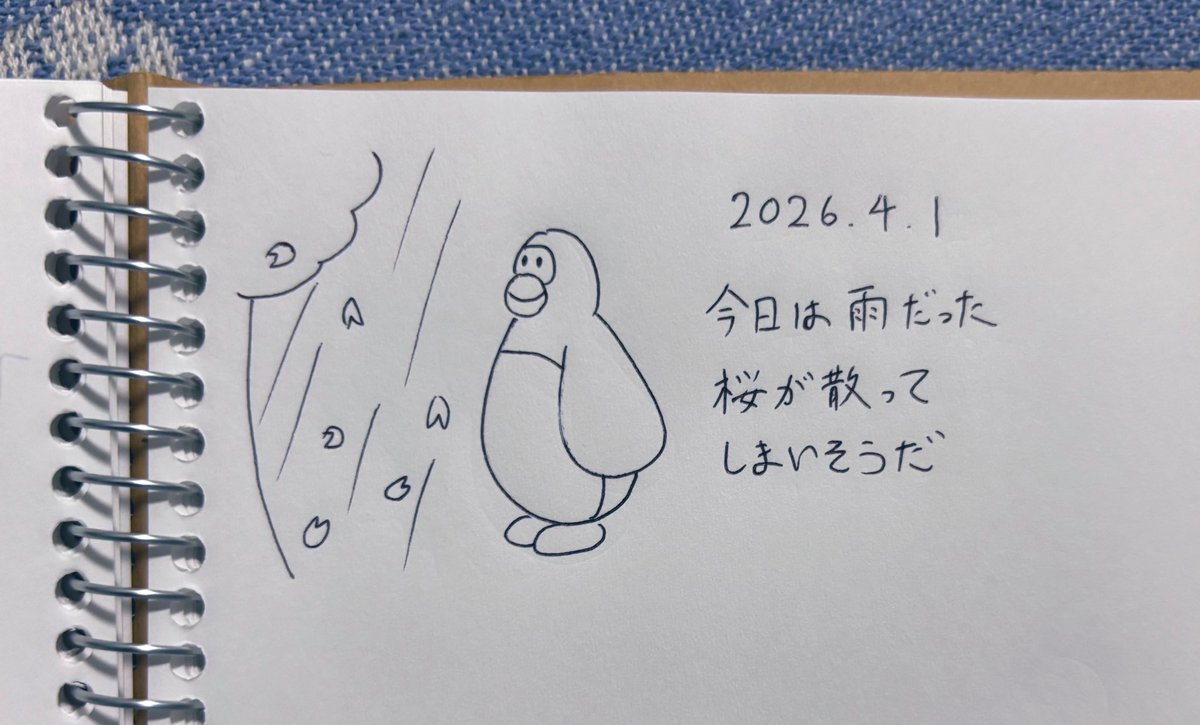 2026.4.1
今日は雨だった
桜が散って
しまいそうだ